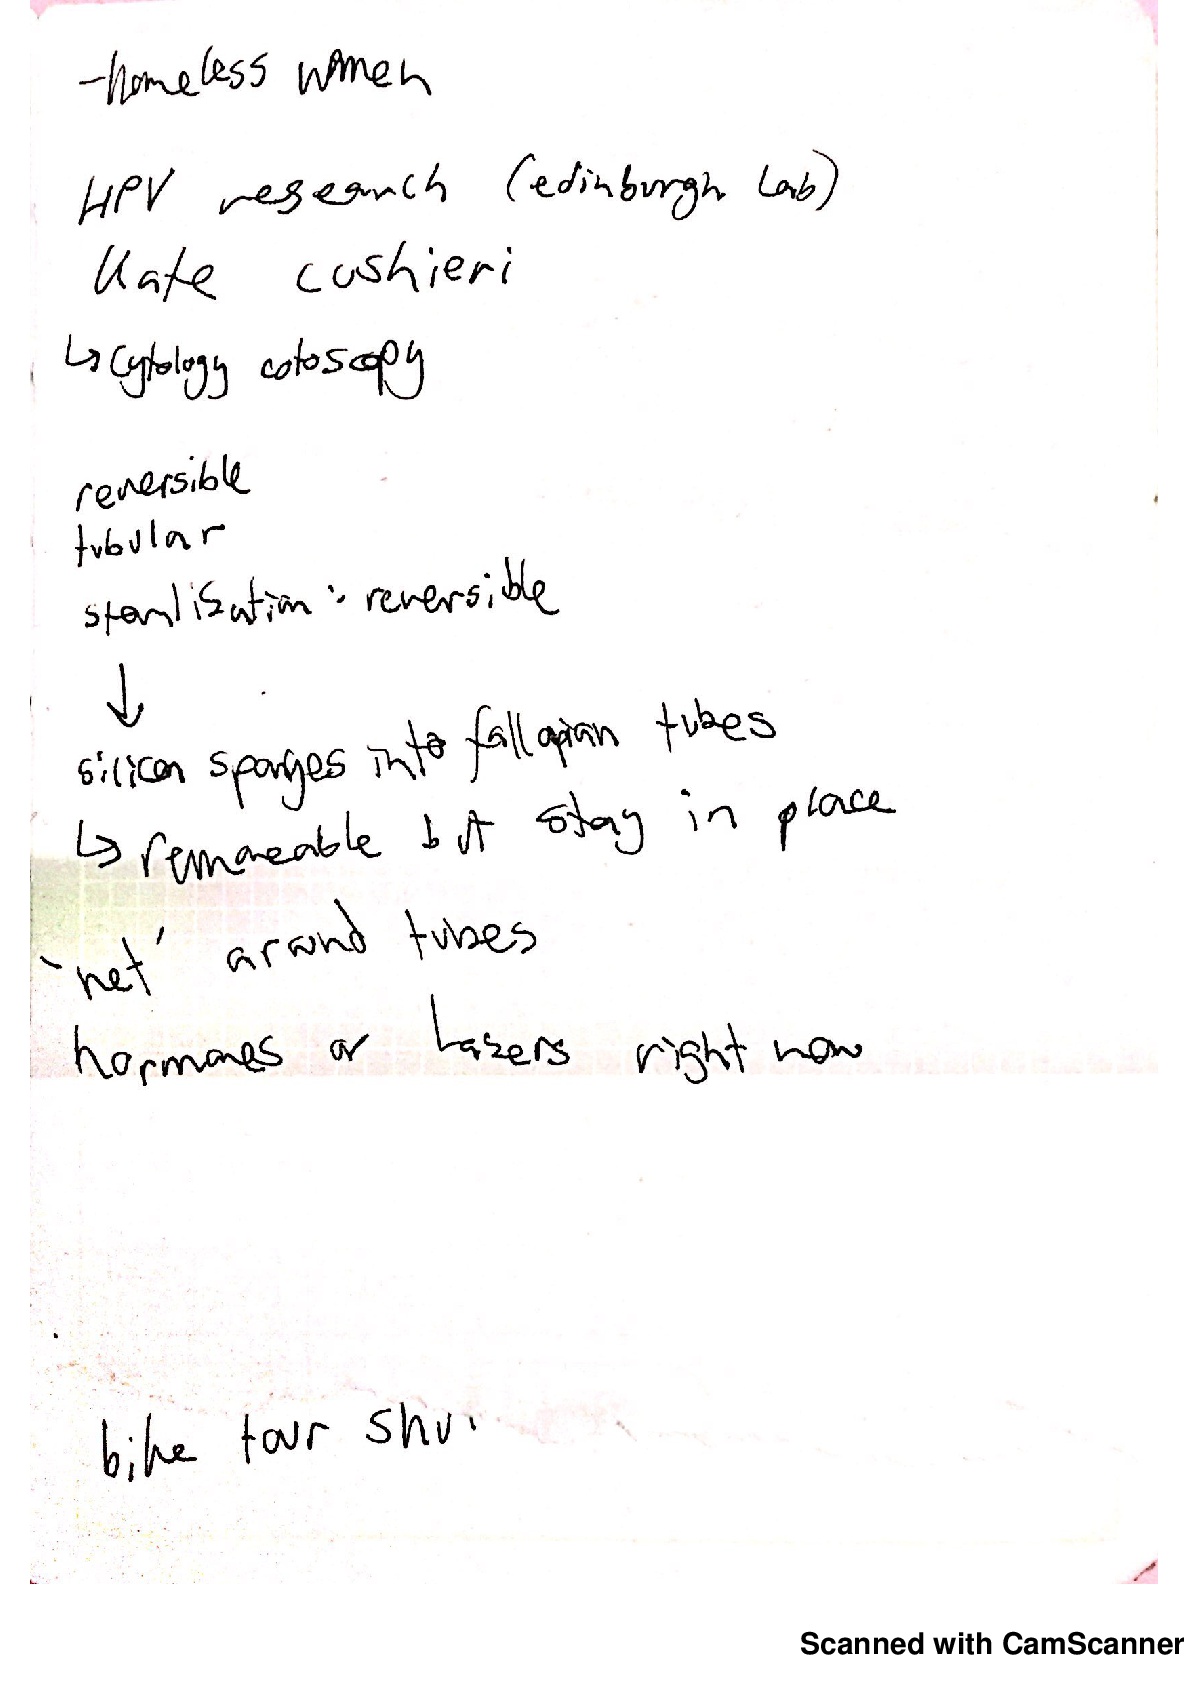 - homeless women
HPV research (edinburgh Lab)
Kate cushieri
↳ Cytology cotoscopy
reversible
tubular
sterilisation : reversible
↓
silicon sponges into fallopian tubes
↳ removeable but stay in place
'net' around tubes
hormones or Lazers right now
bike tour
Scanned with CamScanner